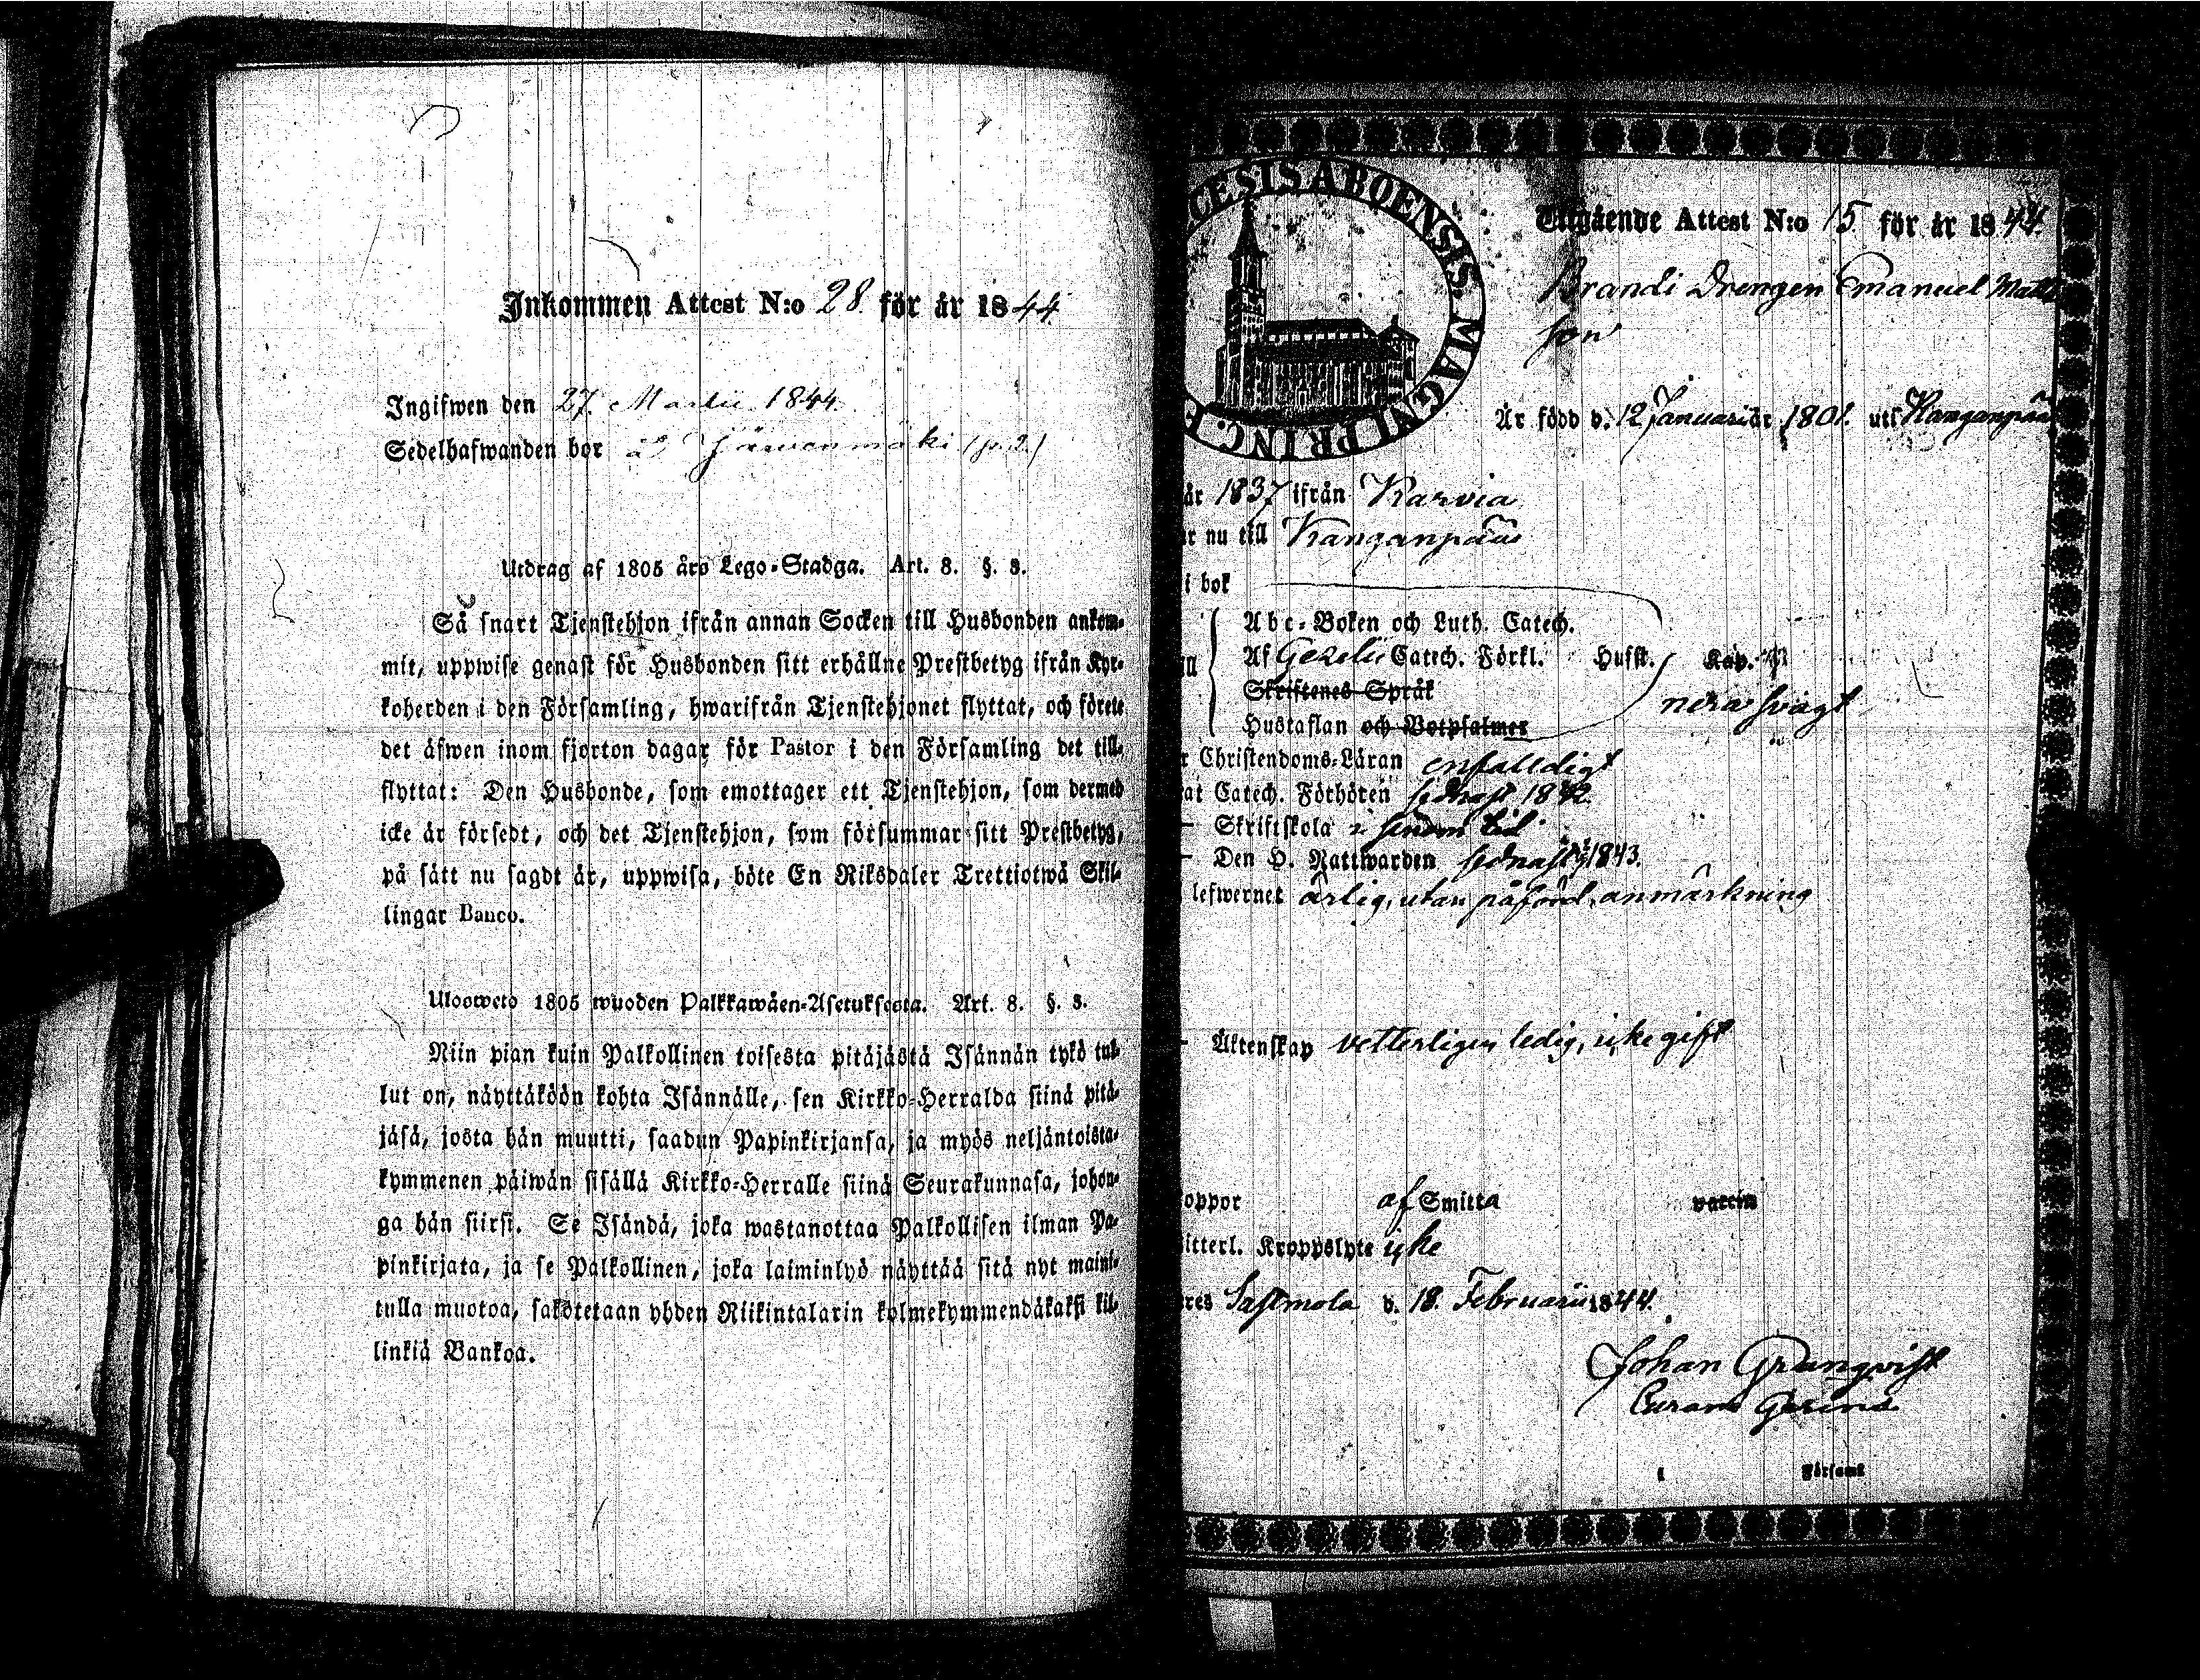 Inkommen Attest N:o 28. för år 1844.
Ingifwen den 27. Martii 1844.
Sedelhafwanden bor å Järvenmäki (p. 2.)
Utdrag af 1805 års Lego-Stadga. Art. 8. §. 3.
Så snart Tjenstehjon ifrån annan Socken till Husbonden ankom-
mit, uppwise genast för Husbonden sitt erhållne Prestbetyg ifrån Kyr-
koherden i den Församling, hwarifrån Tjenstehjonet flyttat, och förete
det äfwen inom fjorton dagar för Pastor i den Församling det till-
flyttat: Den Husbonde, som emottager ett Tjenstehjon, som dermed
icke är försedt, och det Tjenstehjon, som försummar sitt Prestbetyg,
på sätt nu sagdt är, uppwisa, böte En Riksdaler Trettiotwå Skil-
lingar Banco.
Ulosweto 1805 wuoden Palkkawäen-Asetuksesta. Art. 8. §. 3.
Niin pian kuin Palkollinen toisesta pitäjästä Isännän tykö tul-
lut on, näyttäköön kohta Isännälle, sen Kirkko-Herralda siinä pitä-
jäsä, josta hän muutti, saadun Papinkirjansa, ja myös neljäntoista-
kymmenen päiwän sisällä Kirkko-Herralle siinä Seurakunnasa, johon-
ga hän siirsi. Se Isändä, joka wastanottaa Palkollisen ilman Pa-
pinkirjata, ja se Palkollinen, joka laiminlyö näyttää sitä nyt maini-
tulla muotoa, sakotetaan yhden Riikintalarin kolmekymmendäkaksi kil-
linkiä Bankoa.
CESIS ABOENSIS. MAGNI PRINC. F
Utgående Attest N:o 15 för år 1844.
Drengen Emanuel Matts
son
Är född d. 12 Januarii år 1801. uti Kanganpää
år 1837 ifrån Karvia
r nu till Kanganpää
i bok
Abc-Boken och Luth. Catech.
ll Af Gezelii Catech. Förkl. Hufst. Kap.
Skriftenes Språk svagt
Hustaflan och Botpsalmer
r Christendoms-Läran enfalldigt
at Catech. Förhören sednast 1842.
Skriftskola i
Den H. Nattwarden sednast 1843.
lefwernet ärlig, utan påförd anmärkning
Äktenskap vetterligen ledig, icke gift
oppor af Smitta vaccin
itterl. Kroppslyte icke
res Sastmola d. 18. Februarii 1844.
Johan Granqvist
Församl